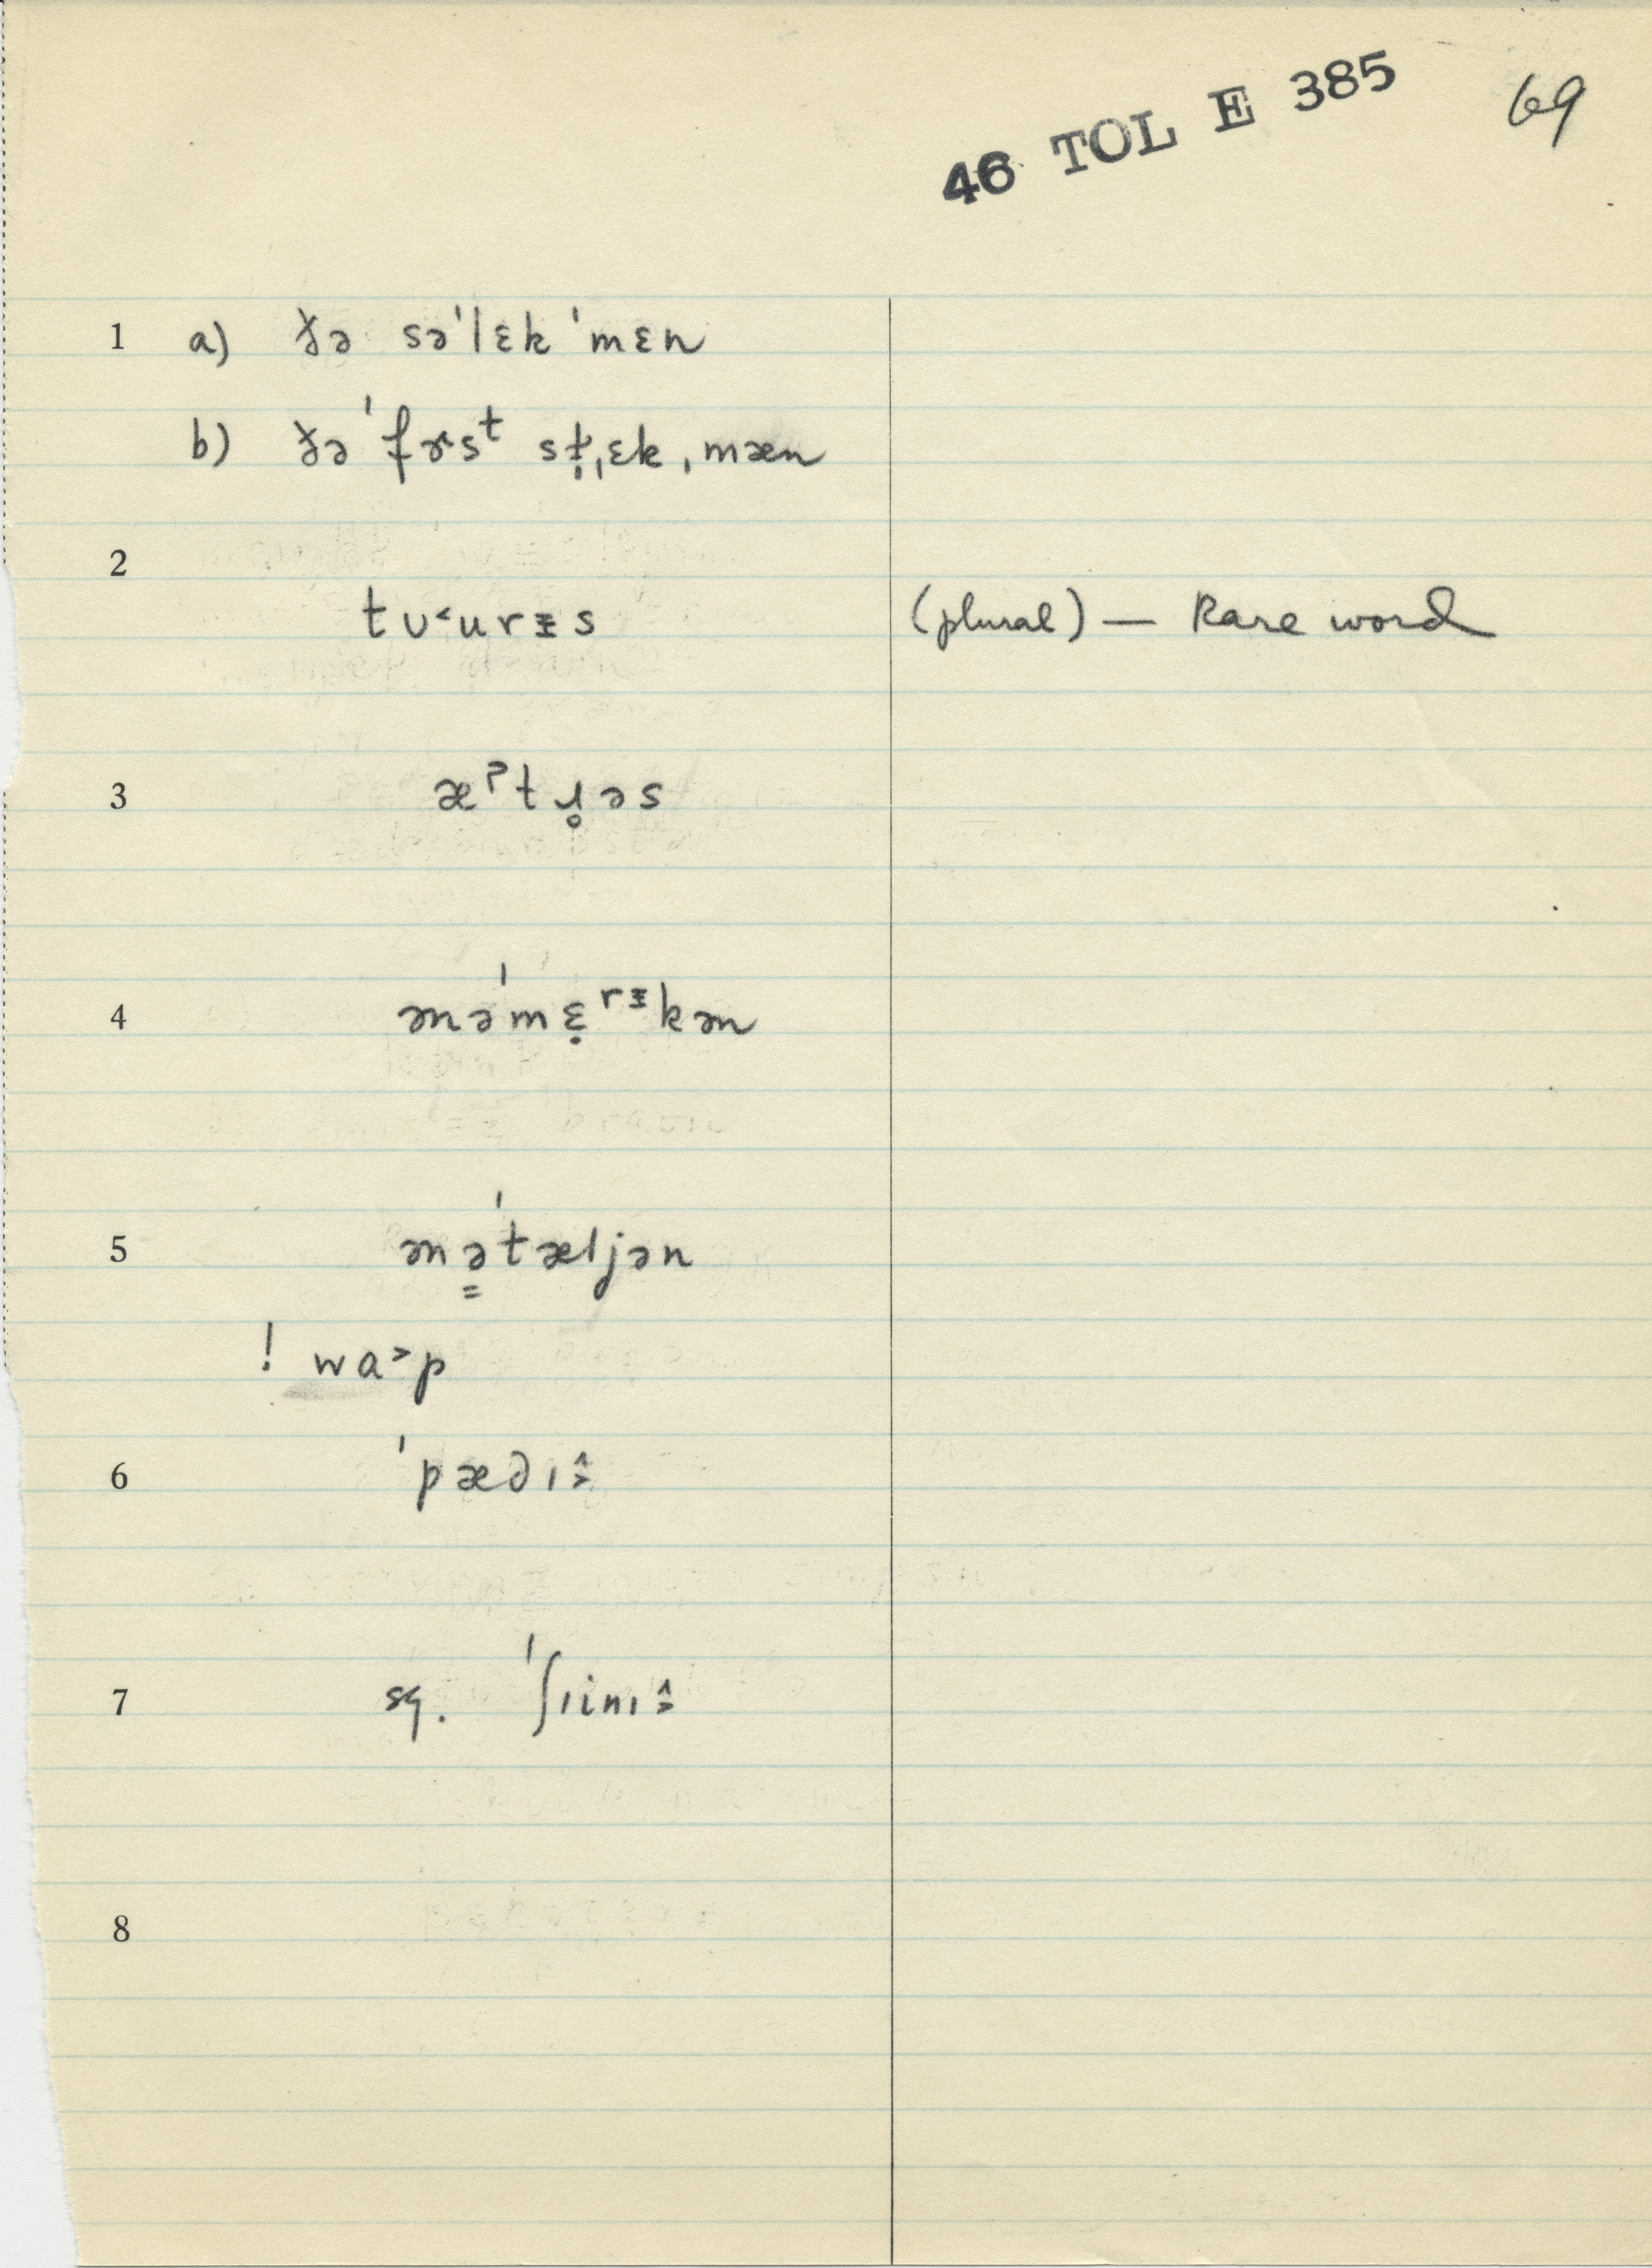 46 TOL E 385 69
1 a) ðə sə'lɛk 'mɛn
b) ðə 'fɚst st̩ˌɛk ˌmæn
2
tʊ˂urɪ̵s (plural) — Rare word
3 æˀtɹ̥əs
4 ənə'mɛ̣ʳᵻkən
5 ənə̳'tæljən
! wa˃p
6 'pædɪ˄˃
7 sg. 'ʃɪinɪ˄˃
8